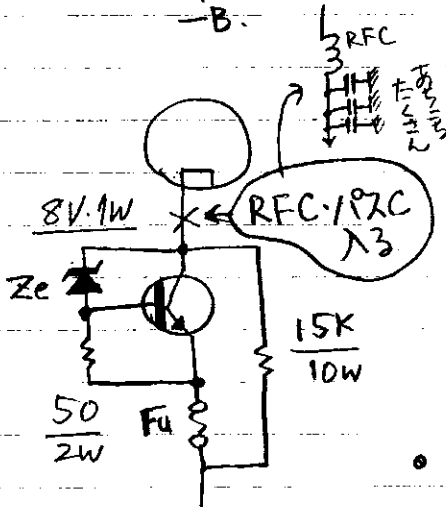 −B.
RFC
あちこち
たくさん
8V.1W
RFC・パスC
入る
Ze
15K
10W
50
2W
Fu